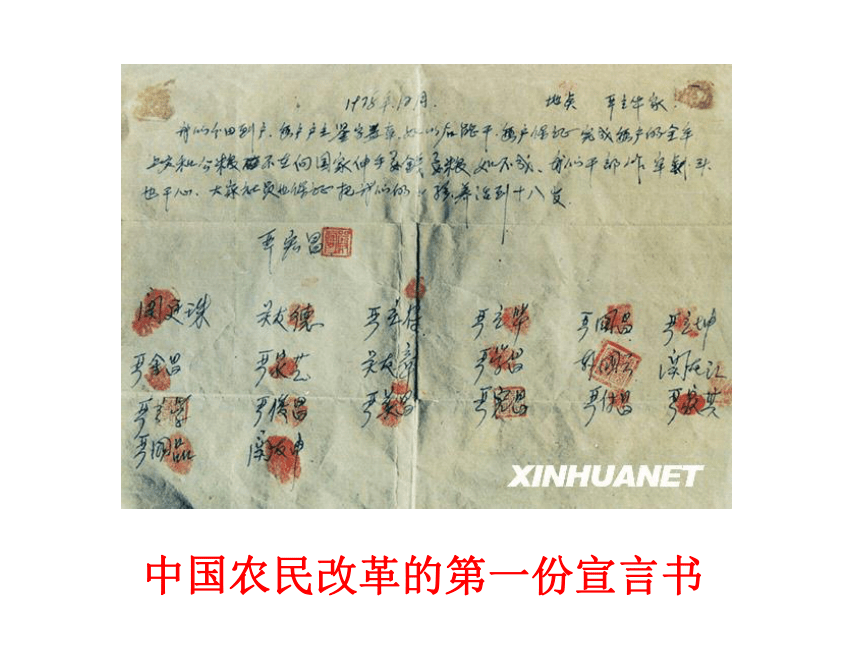 1978年12月. 地点 严立华家.
我们分田到户.每户户主签字盖章.如以后能干.每户保证完成每户的全年
上交和公粮不在向国家伸手要钱要粮.如不成.我们干部作牢刹头
也干心.大家社员也保证把我们的小孩养活到十八岁.
严宏昌
关廷珠 关友德 严立付 严立华 严国昌 严立坤
严金昌 严家芝 关友章 严学昌 韩国云 关友江
严立学 严俊昌 严美昌 严宏昌 严付昌 严家其
严国品 关友申
XINHUANET
中国农民改革的第一份宣言书